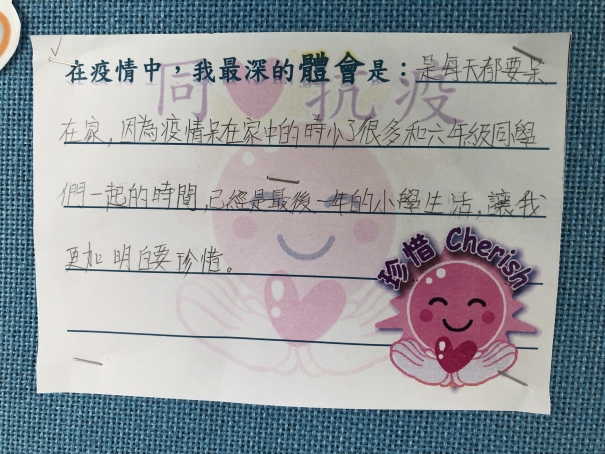 在疫情中，我最深的體會是：是每天都要呆
同抗疫
在家，因為疫情呆在家中的時小了很多和六年級同學
們一起的時間，已經是最後一年的小學生活，讓我
更加明白要珍惜。
珍惜 Cherish